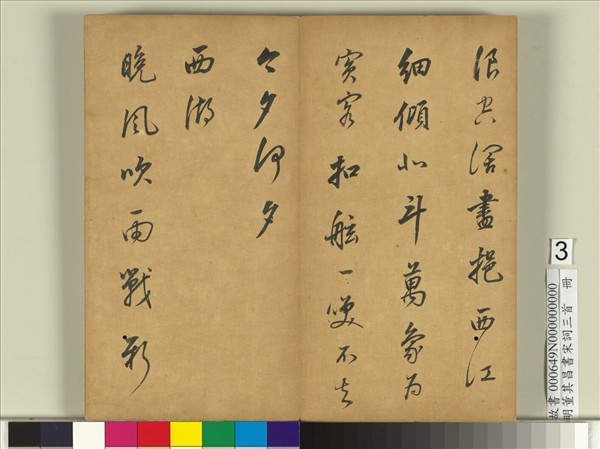 浪空闊盡挹西江
細傾北斗萬象為
賓客扣舷一咲不知
今夕何夕
西湖
晚風吹雨戰新
3
故書000649N000000000
明董其昌書宋詞三首 冊